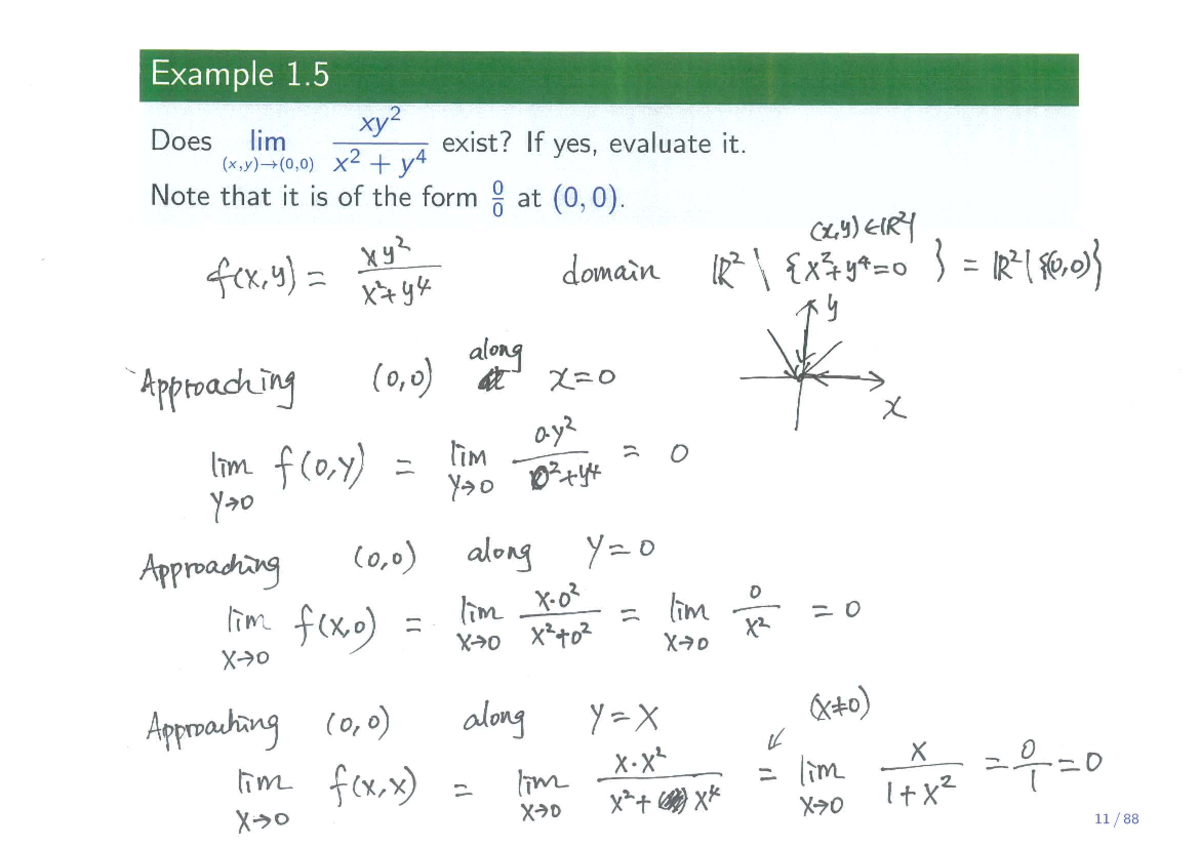 Example 1.5
Does lim_{(x,y)→(0,0)} xy²/(x² + y⁴) exist? If yes, evaluate it.
Note that it is of the form 0/0 at (0, 0).
f(x,y) = xy²/(x²+y⁴) domain ℝ² \ {(x,y)∈ℝ² | x²+y⁴=0} = ℝ² \ {(0,0)}
y
x
Approaching (0,0) along x=0
lim_{y→0} f(0,y) = lim_{y→0} 0·y²/(0²+y⁴) = 0
Approaching (0,0) along y=0
lim_{x→0} f(x,0) = lim_{x→0} x·0²/(x²+0²) = lim_{x→0} 0/x² = 0
Approaching (0,0) along y=x (x≠0)
lim_{x→0} f(x,x) = lim_{x→0} x·x²/(x²+x⁴) = lim_{x→0} x/(1+x²) = 0/1 = 0
11 / 88